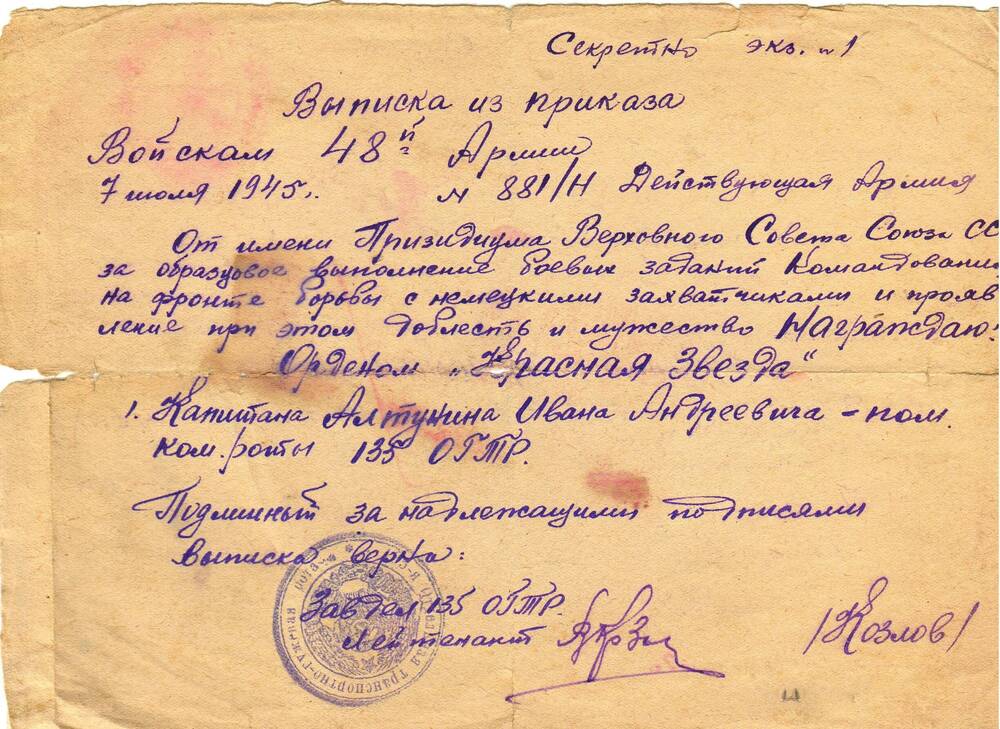 Секретно экз. №1
Выписка из приказа
Войскам 48й Армии
7 июля 1945г. № 881/Н Действующая Армия
От имени Призидиума Верховного Совета Союза СС
за образцовое выполнение боевых заданий Командовани
на фронте борьбы с немецкими захватчиками и прояв
ление при этом доблесть и мужество Награждаю:
Орденом „Красная Звезда“
1. Капитана Алтунина Ивана Андреевича – пом.
ком. роты 135 ОГТР.
Подлинный за надлежащими подписями
выписка верна:
Завдел 135 ОГТР.
Лейтенант /Козлов/
транспортно-гужевая рота